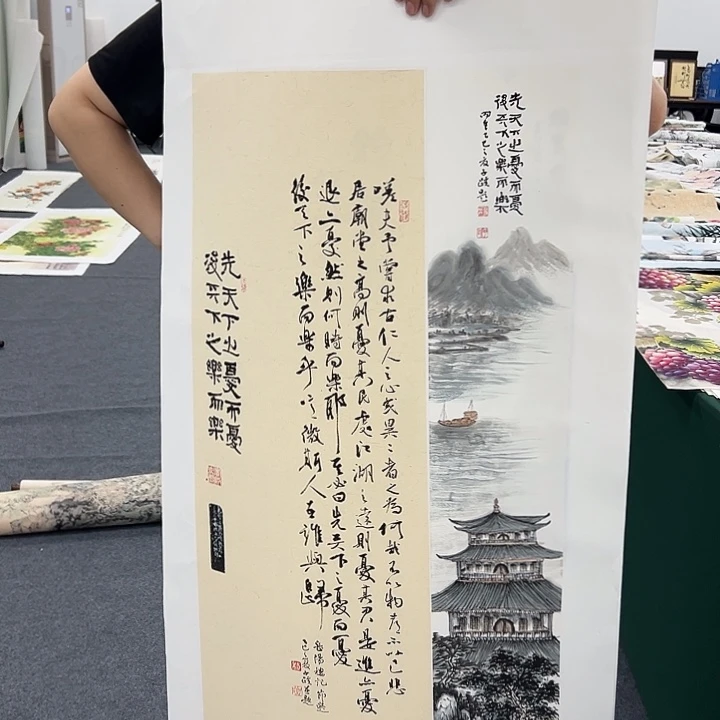 先天下之憂而憂
後天下之樂而樂
嗟夫予嘗求古仁人之心或異二者之為何哉不以物喜不以己悲
居廟堂之高則憂其民處江湖之遠則憂其君是進亦憂
退亦憂然則何時而樂耶其必曰先天下之憂而憂
後天下之樂而樂乎噫微斯人吾誰與歸
岳陽樓記節選
先天下之憂而憂
後天下之樂而樂